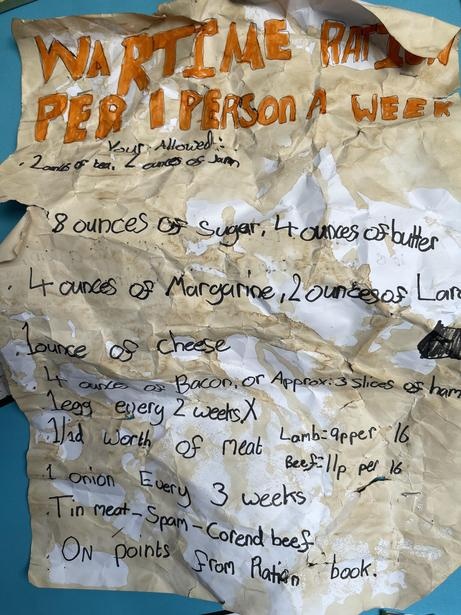 WARTIME RATION
PER 1 PERSON A WEEK
Your Allowed:
. 2 ounces of tea, 2 ounces of Jam
8 ounces of Sugar, 4 ounces of butter
. 4 ounces of Margarine, 2 ounces of Lard
. 1 ounce of cheese
. 4 ounces of Bacon, or Approx: 3 slices of ham
1 egg every 2 weeks X
. 1/1d worth of meat Lamb= 9p per 1b
Beef= 11p per 1b
1 onion Every 3 weeks
. Tin meat - Spam - Corend beef
ON points from Ration book.